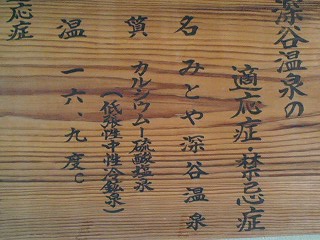 深谷温泉の
適応症・禁忌症
名 みとや深谷温泉
質 カルシウム－硫酸塩泉
（低張性中性冷鉱泉）
温 一六．九度C
応症